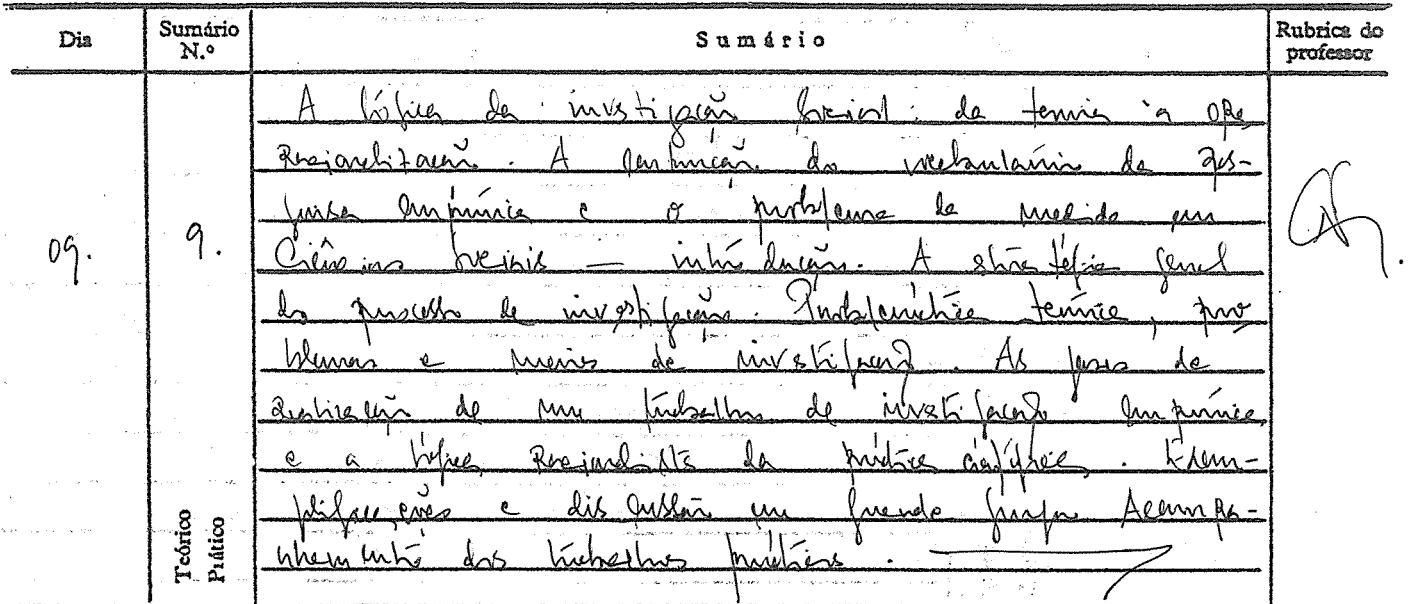 Dia
Sumário N.º
Sumário
Rubrica do professor
09.
9.
Teórico
Prático
A lógica da investigação social: da teoria à ope
racionalização. A construção do vocabulário da pes-
quisa empírica e o problema da medida em
Ciências Sociais — introdução. A estratégia geral
do processo de investigação. Problemática teórica, pro
blemas e meios de investigação. As fases de
realização de um trabalho de investigação empírica
e a lógica racionalista da prática científica. Exem-
plificações e discussão em grande grupo Acompa-
nhamento dos trabalhos práticos.